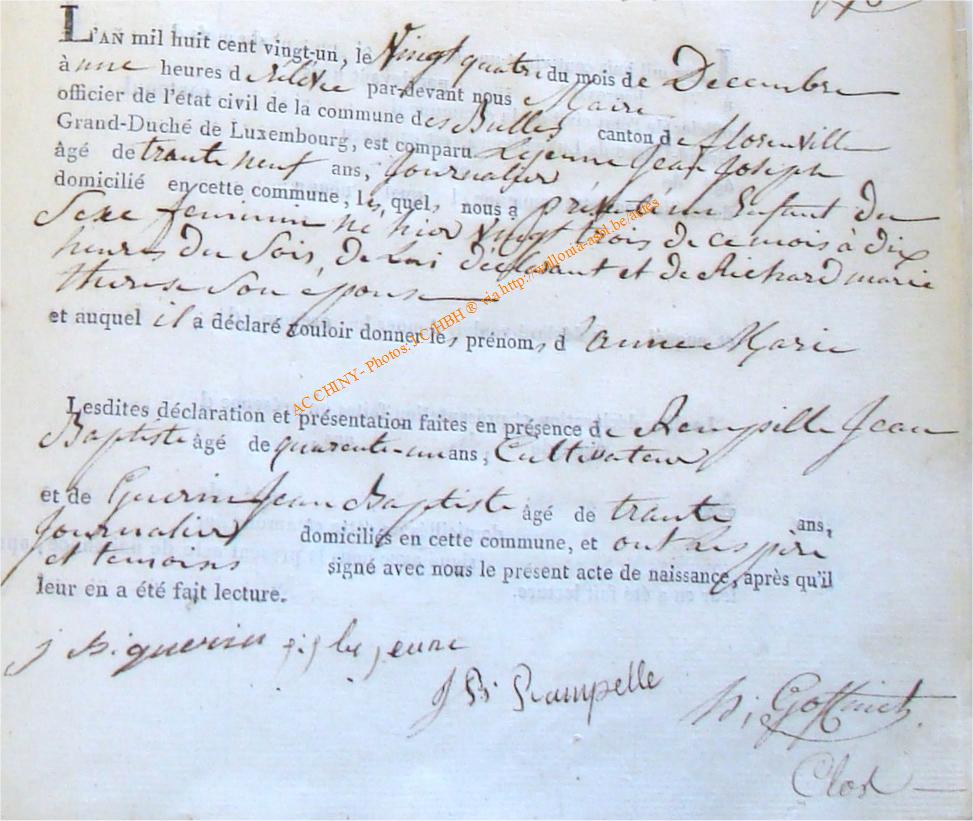 L'AN mil huit cent vingt-un, le Vingt quatre du mois de Decembre
à une heures de rélévé par-devant nous Maire
officier de l'état civil de la commune des Bulles canton de florenville
Grand-Duché de Luxembourg, est comparu Lejeune Jean Joseph
âgé de trante neuf ans, Journalier,
domicilié en cette commune, lequel nous a présenté un Enfant du
Sexe feminin né hier vingt trois de ce mois à dix
heures du Soir, de Lui déclarant et de Richard marie
therese Son épouse
et auquel il a déclaré vouloir donner les prénoms d'anne Marie
AC CHINY - Photos: JC HBH ® via http://wallonia-asbl.be/actes
Lesdites déclaration et présentation faites en présence de Rampelle Jean
Baptiste âgé de quarente-un ans, Cultivateur
et de Guerin Jean Baptiste âgé de trante ans,
Journalier domiciliés en cette commune, et ont les pére
et temoins signé avec nous le présent acte de naissance, après qu'il
leur en a été fait lecture.
j b. guerin j. j le jeune
J B Rampelle
h. Goffinet